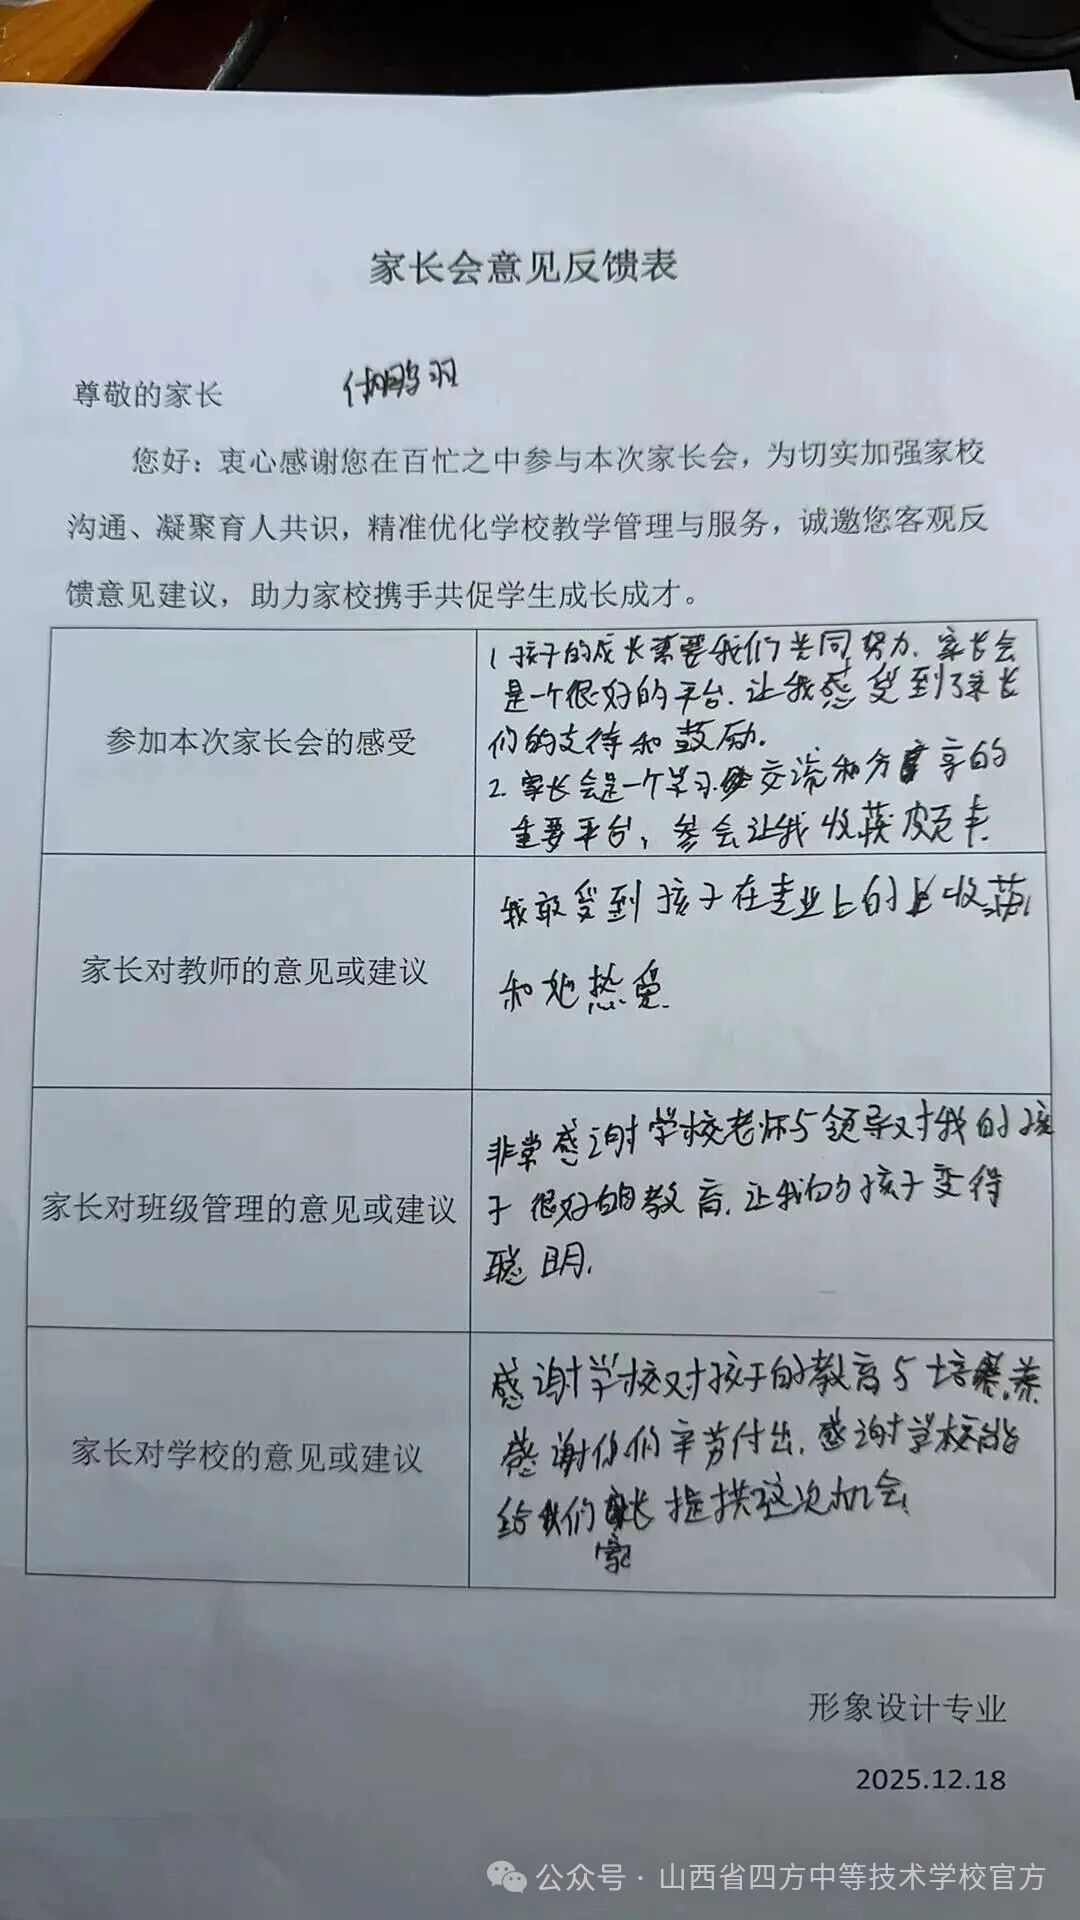 家长会意见反馈表
尊敬的家长 付鹏羽
您好：衷心感谢您在百忙之中参与本次家长会，为切实加强家校
沟通、凝聚育人共识，精准优化学校教学管理与服务，诚邀您客观反
馈意见建议，助力家校携手共促学生成长成才。
参加本次家长会的感受
1 孩子的成长需要我们共同努力. 家长会
是一个很好的平台. 让我感受到了家长
们的支待和鼓励.
2. 家长会是一个学习 交流和分享的
重要平台，参会让我收获颇丰
家长对教师的意见或建议
我敢受到孩子在专业上的收获
和她热爱
家长对班级管理的意见或建议
非常感谢学校老师与领导对我的孩
子很好的教育. 让我的孩子变得
聪明.
家长对学校的意见或建议
感谢学校对孩子的教育与培养
感谢你们辛劳付出. 感谢学校能
给我们家长提供这次机会
形象设计专业
2025.12.18
公众号 · 山西省四方中等技术学校官方